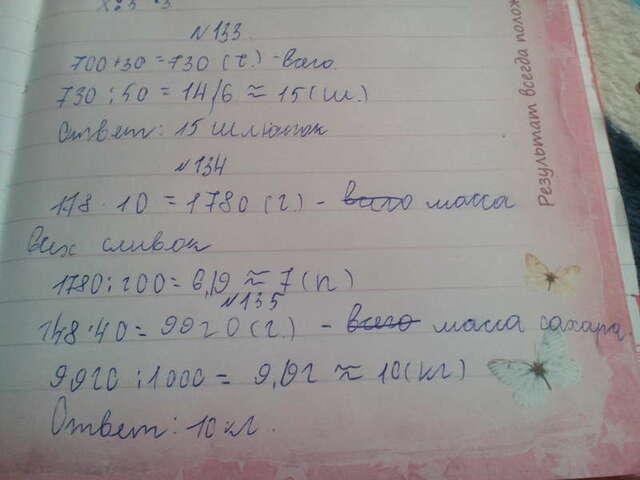 №133
700+30=730 (ч.) - всего
730:50=14,6≈15(ш.)
Ответ: 15 шлюпок
№134
178·10=1780(г.) - всего масса
всех сливок
1780:200=6,19≈7(п)
№135
248·40=9920(г.) - всего масса сахара
9920:1000=9,92≈10(кг)
Ответ: 10 кг.
Результат всегда полож